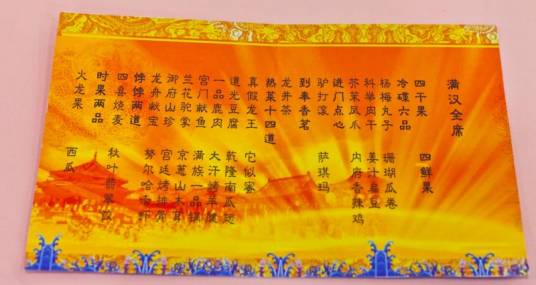 满汉全席
四干果 四鲜果
冷碟六品
杨梅丸子 珊瑚瓜卷
科举肉干 姜汁扁豆
芥菜凤爪 内府香辣鸡
进门点心
驴打滚 萨琪玛
到奉香茗
龙井茶
热菜十四道
真假龙王 它似蜜
道光豆腐 乾隆南瓜翅
一品鹿肉 大汗
宫门献鱼 满族一品
兰花驼掌 京葱山木耳
御府山珍 宫廷烤排骨
龙舟献宝 努尔哈
饽饽两道
四喜烧麦 秋叶
时果两品
火龙果 西瓜